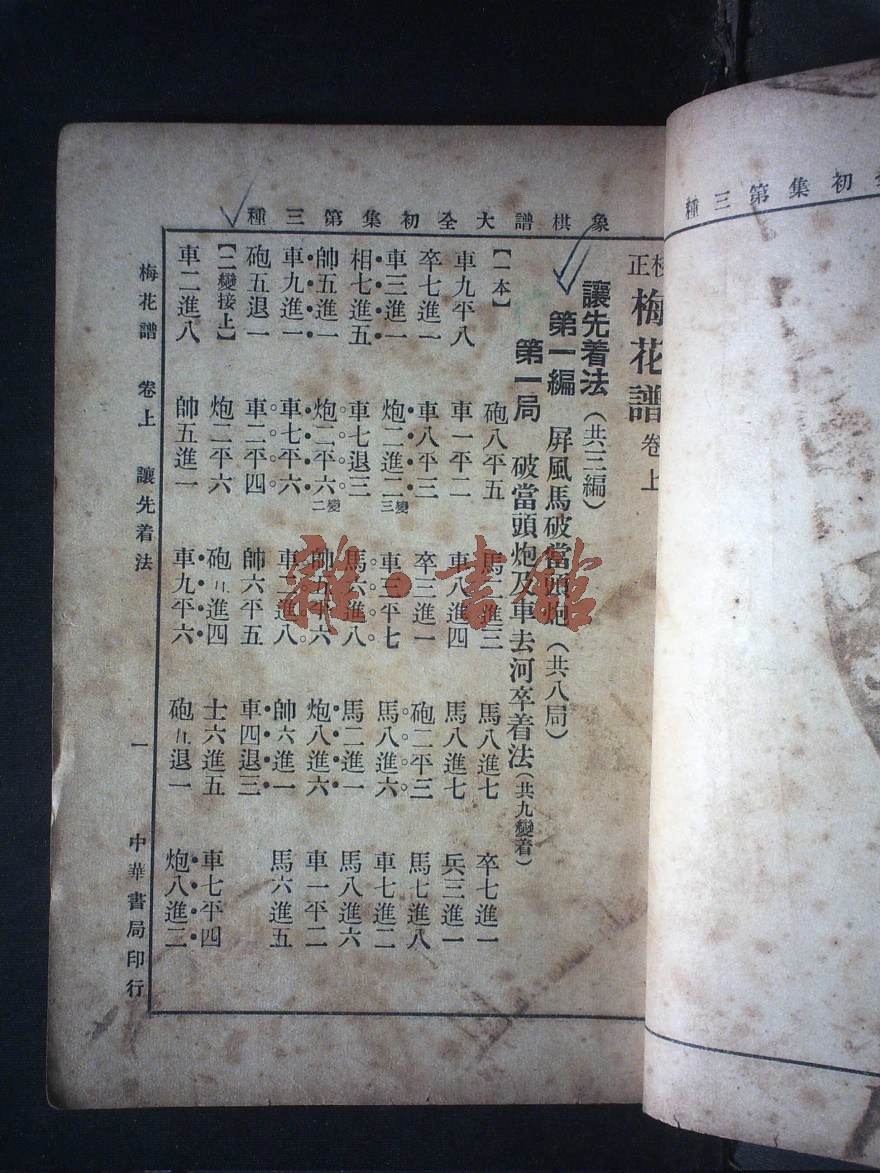 象棋譜大全初集第三種
正
梅花譜 卷上
讓先着法(共三編)
第一編 屏風馬破當頭炮(共八局)
第一局 破當頭炮及車去河卒着法(共九變着)
【一本】 砲八平五 馬二進三 馬八進七 卒七進一
車九平八 車一平二 車八進四 馬八進七 兵三進一
卒七進一 車八平三 卒三進一 砲二平三 馬七進八
車三進一 炮二進二三變 車一平七 馬八進六 車七進二
相七進五 車七退三 馬六進八 馬二進一 馬八進六
帥五進一 炮二平六二變 帥五平六 炮八進六 車一平二
車九進一 車七平六 車二進八 帥六進一 馬六進五
砲五退一 車二平四 帥六平五 車四退三
【二變接上】 炮二平六 砲九進四 士六進五 車七平四
車二進八 帥五進一 車九平六 砲九退一 炮八進二
梅花譜 卷上 讓先着法 一 中華書局印行
初集第三種
雜·書館